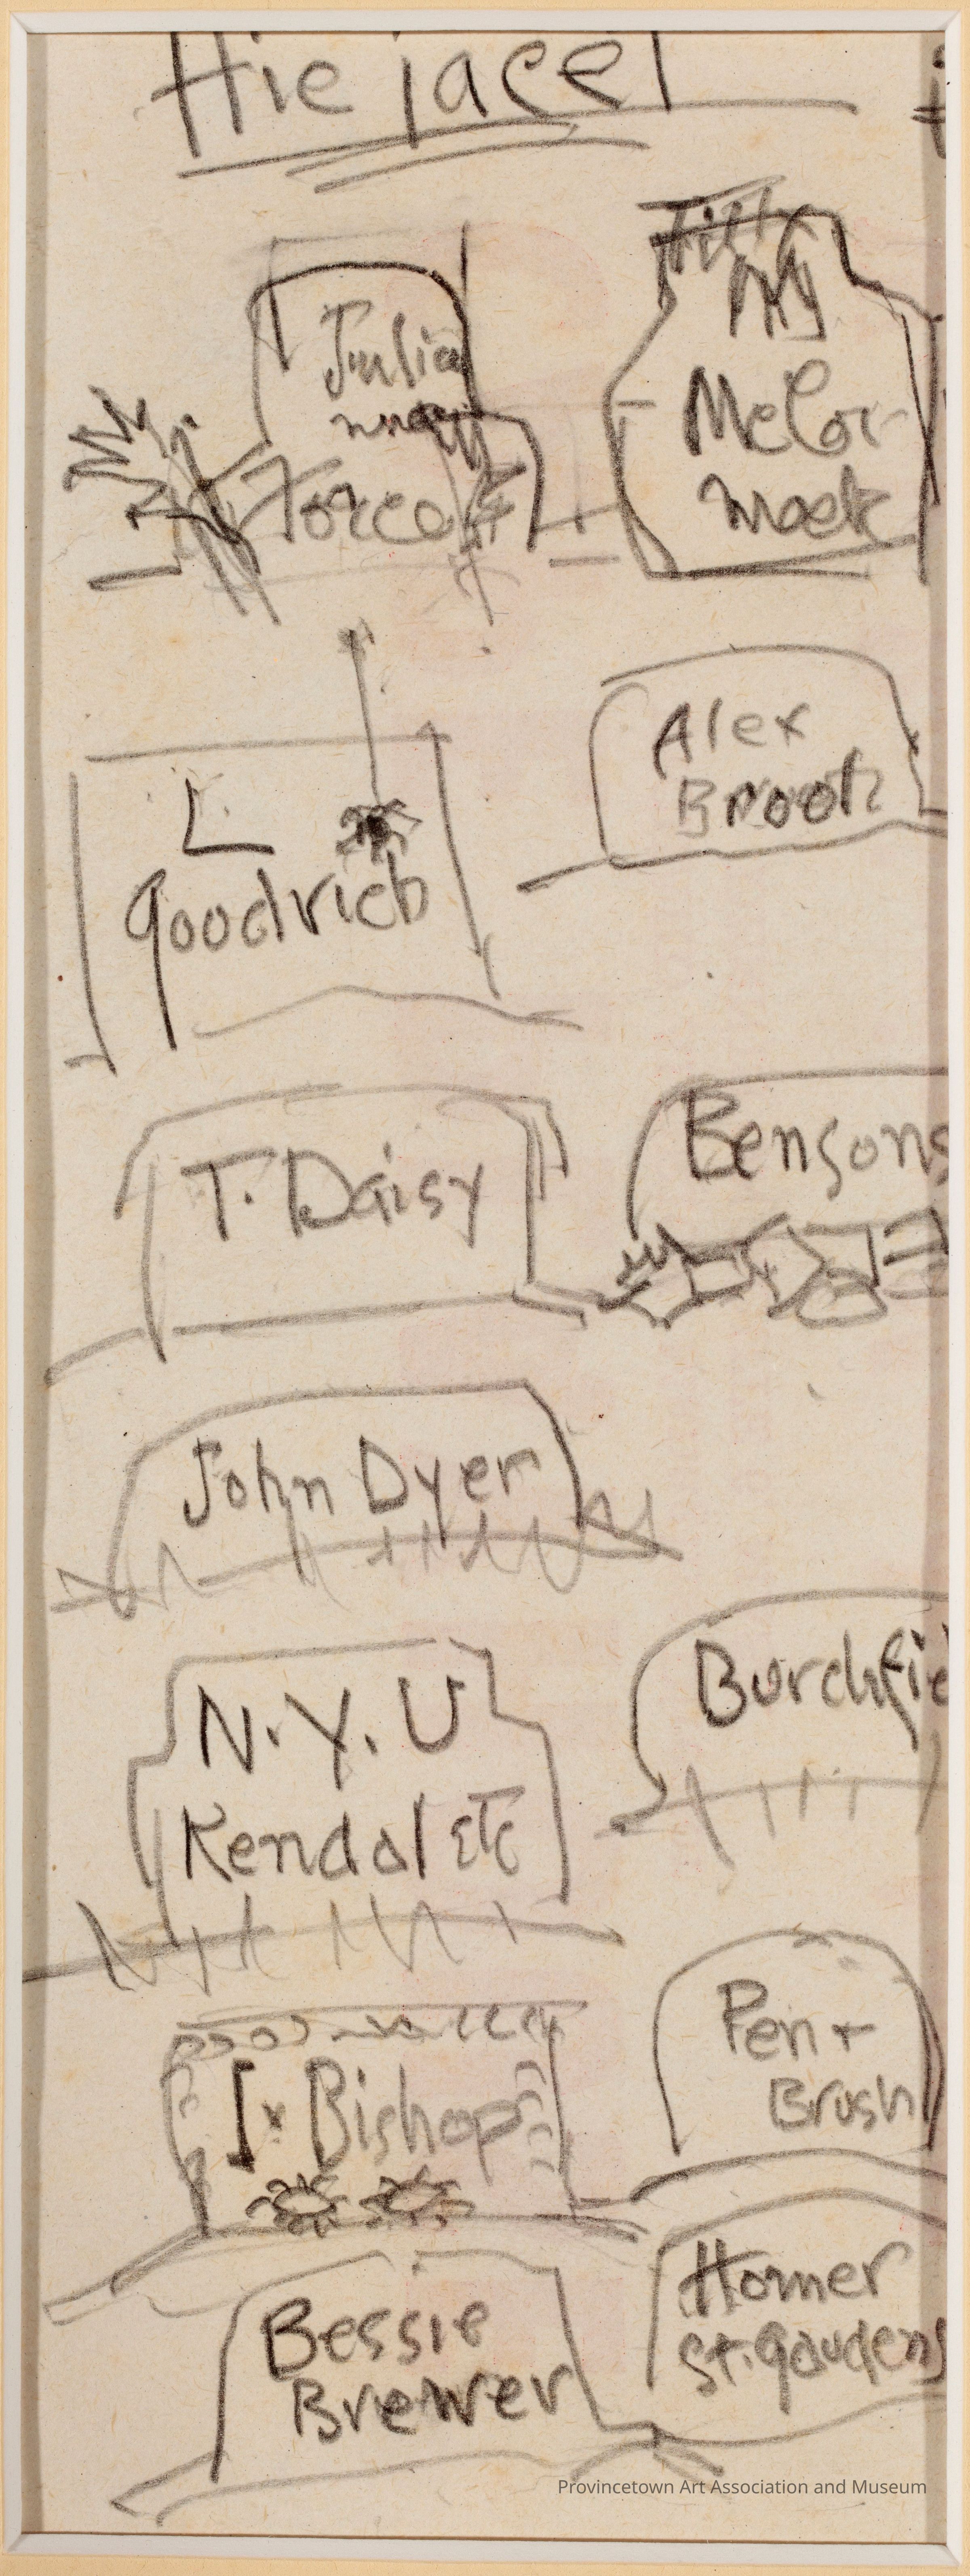 Hic jacet
Julia
Force
My
McCor-
mack
Alex
Brook
L.
Goodrich
T. Daisy
Bensons
John Dyer
N.Y.U
Kendal etc
Burchfie
Pen +
Brush
I. Bishop
Homer
St. Gaudens
Bessie
Brewer
Provincetown Art Association and Museum